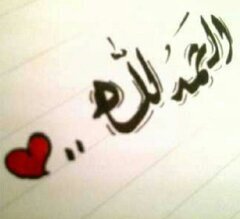 الحمد لله ..